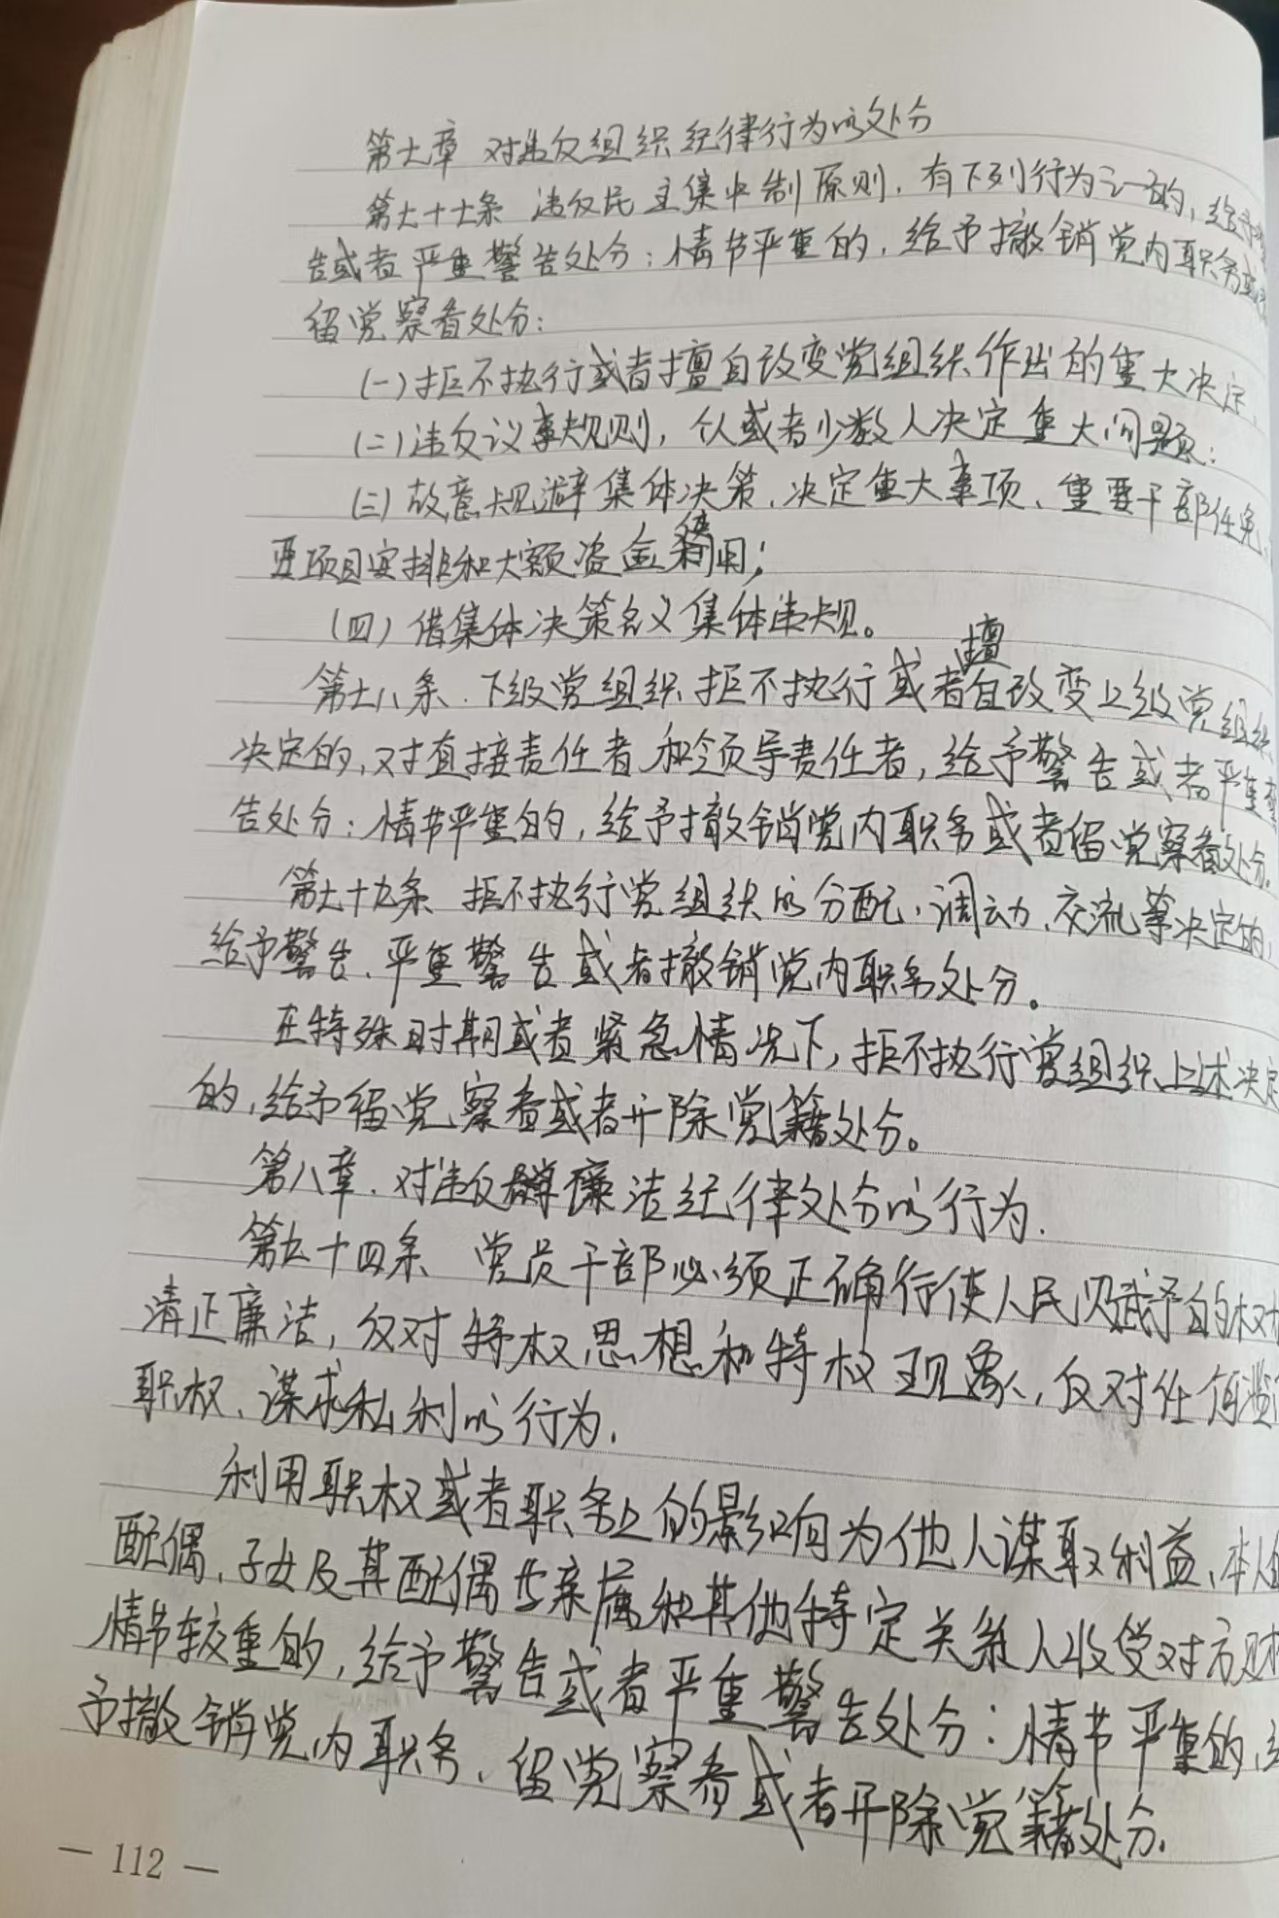 第七章 对违反组织纪律行为的处分
第七十七条 违反民主集中制原则，有下列行为之一的，给予
告或者严重警告处分；情节严重的，给予撤销党内职务或
留党察看处分：
(一)拒不执行或者擅自改变党组织作出的重大决定
(二)违反议事规则，个人或者少数人决定重大问题；
(三)故意规避集体决策，决定重大事项、重要干部任免、
要项目安排和大额资金使用；
(四)借集体决策名义集体违规。
第七八条.下级党组织拒不执行或者擅自改变上级党组织
决定的，对直接责任者和领导责任者，给予警告或者严重警
告处分；情节严重的，给予撤销党内职务或者留党察看处分。
第七十九条 拒不执行党组织的分配、调动、交流等决定的，
给予警告、严重警告或者撤销党内职务处分。
在特殊时期或者紧急情况下，拒不执行党组织上述决定
的，给予留党察看或者开除党籍处分。
第八章.对违反廉洁纪律处分的行为.
第九十四条 党员干部必须正确行使人民赋予的权
清正廉洁，反对特权思想和特权现象，反对任何滥
职权、谋求私利的行为.
利用职权或者职务上的影响为他人谋取利益，本人的
配偶、子女及其配偶等亲属和其他特定关系人收受对方财
情节较重的，给予警告或者严重警告处分；情节严重的，给
予撤销党内职务、留党察看或者开除党籍处分.
— 112 —